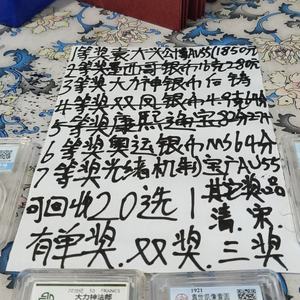 1等奖袁大头公博AU55(1850元
2等奖墨西哥银币16克280元
3等奖大力神银币
4等奖双凤银币4.9克64分
5等奖康熙通宝82分
6等奖奥运银币MS64分
7等奖光绪机制宝广AU55
可回收20选1
其它奖品
清 宋
有单奖.双奖.三奖
50 FRANCS
大力神法郎
1921